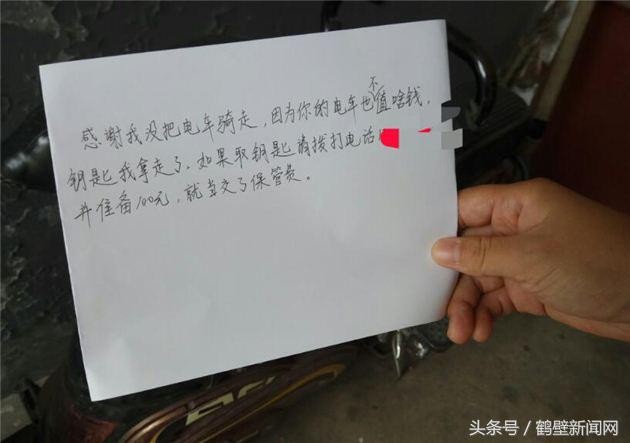 感谢我没把电车骑走，因为你的电车也不值啥钱，
钥匙我拿走了。如果取钥匙请拨打电话
并准备100元，就当交了保管费。
头条号 / 鹤壁新闻网